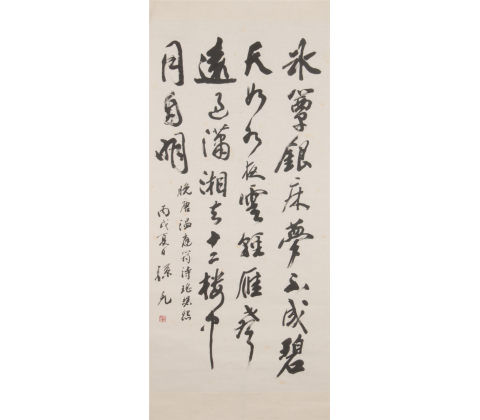 冰簟銀床夢不成碧
天如水夜雲輕雁聲
遠過瀟湘去十二楼中
月自明
晚唐温庭筠詩瑤瑟怨
丙戌夏日